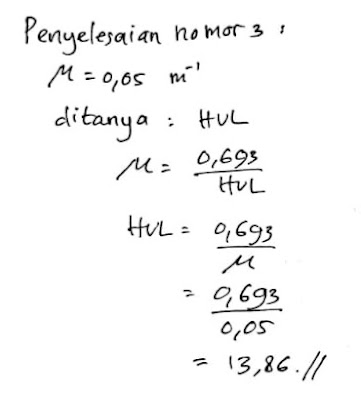 Penyelesaian nomor 3 :
μ = 0,05 m⁻¹
ditanya : HVL
μ = 0,693
HVL
HVL = 0,693
μ
= 0,693
0,05
= 13,86.//